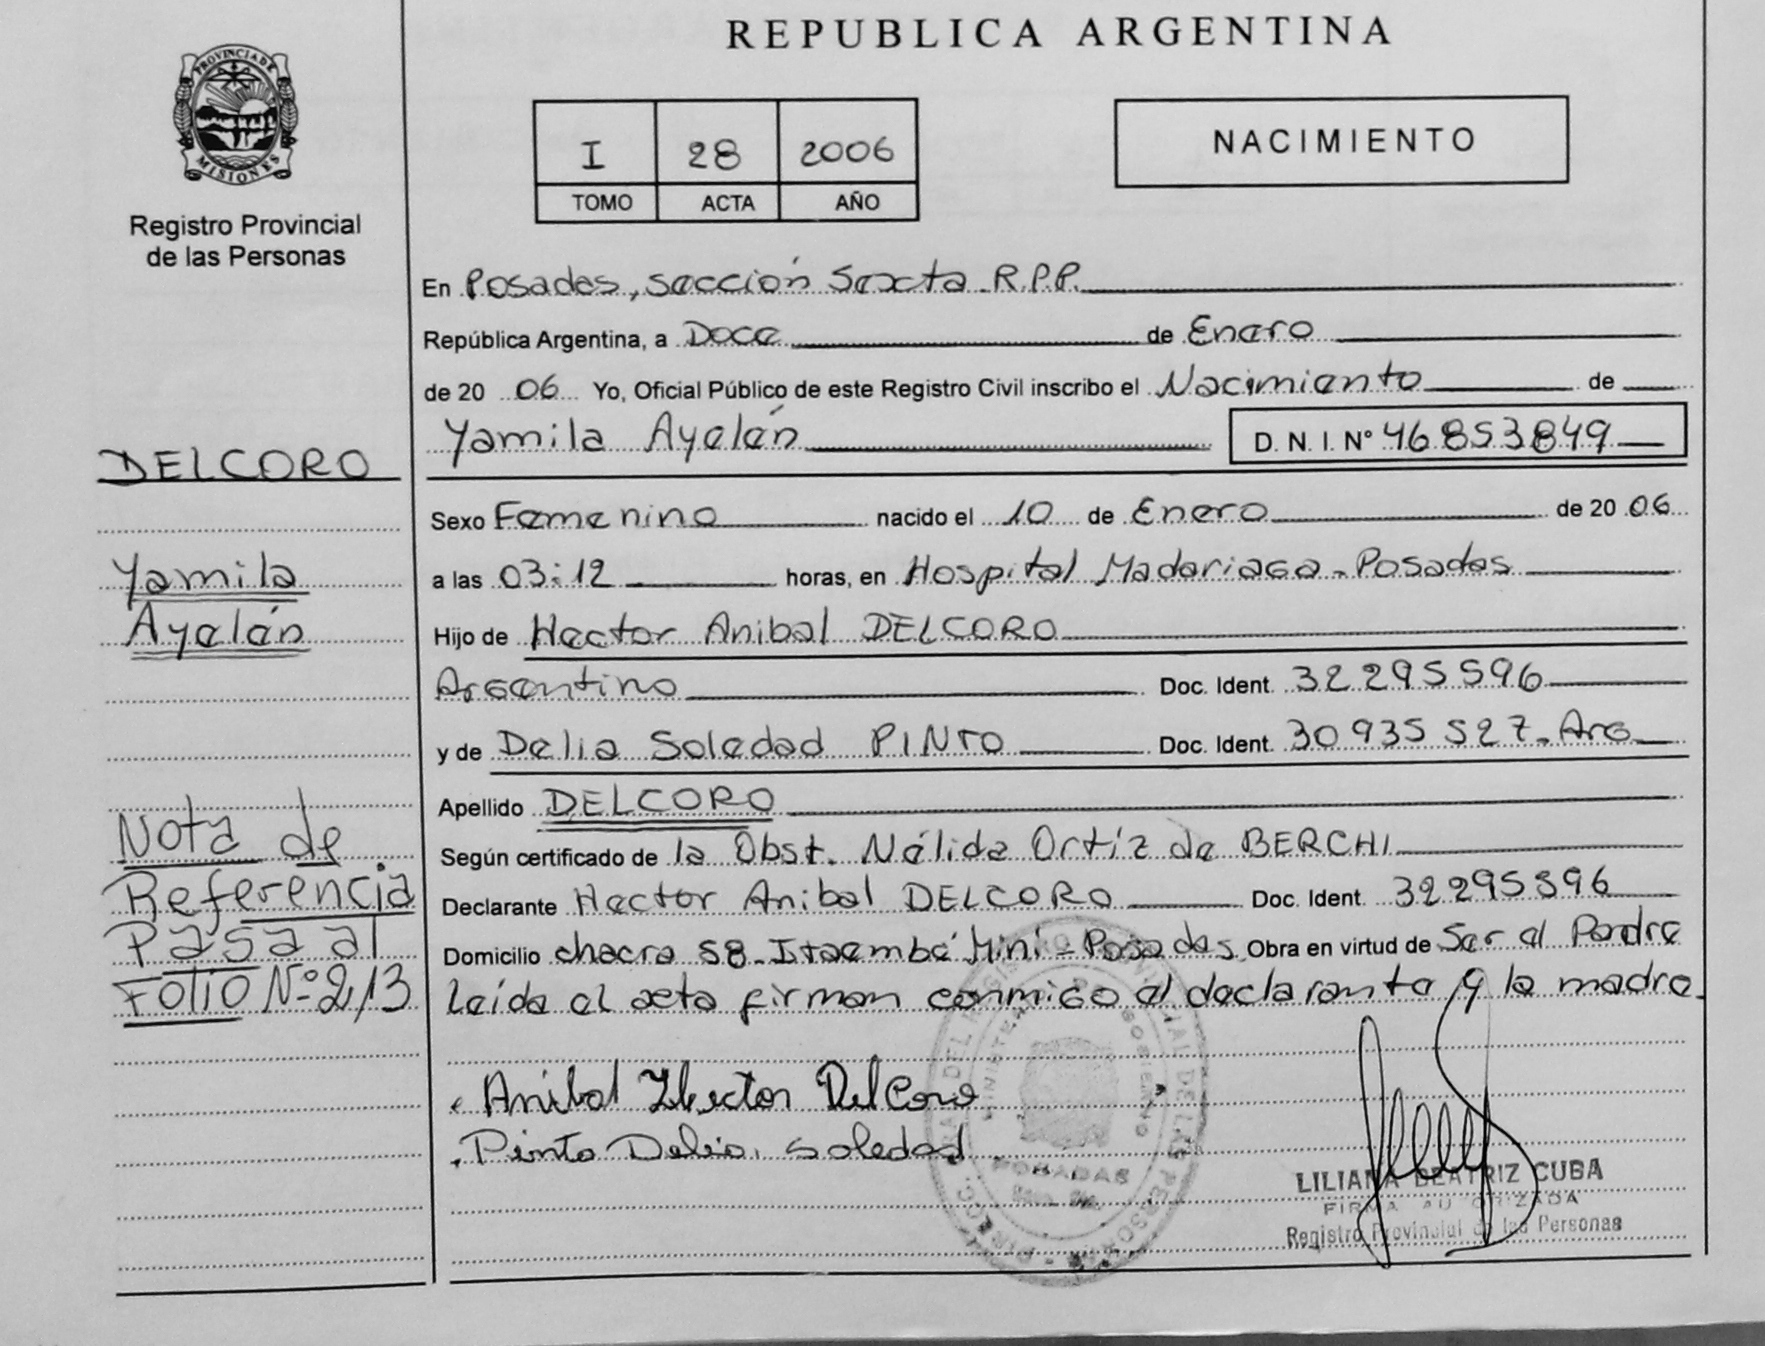 PROVINCIA DE
MISIONES
Registro Provincial
de las Personas
REPUBLICA ARGENTINA
I 28 2006
TOMO ACTA AÑO
NACIMIENTO
En Posadas, sección Sexta R.P.P.
República Argentina, a Doce de Enero
de 20 06 Yo, Oficial Público de este Registro Civil inscribo el Nacimiento de
Yamila Ayelén D.N.I. Nº 46 853849
DELCORO
Sexo Femenino nacido el 10 de Enero de 20 06
Yamila
a las 03:12 horas, en Hospital Madariaga - Posadas
Ayelén
Hijo de Hector Anibal DELCORO
Argentino Doc. Ident. 32 295 596
y de Delia Soledad PINTO Doc. Ident. 30 935 527 - Arg
Apellido DELCORO
Nota de
Según certificado de la Obst. Nélida Ortíz de BERCHI
Referencia
Declarante Hector Anibal DELCORO Doc. Ident. 32295596
Pasa al
Domicilio chacra 58 - Itaembé Miní - Posadas Obra en virtud de Ser el Padre
Folio Nº 213
Leída el acta firman conmigo el declarante y la madre.
Aníbal Hector DelCoro
Pinto Delia Soledad
POSADAS
LILIANA BEATRIZ CUBA
FIRMA AUTORIZADA
Registro Provincial de las Personas